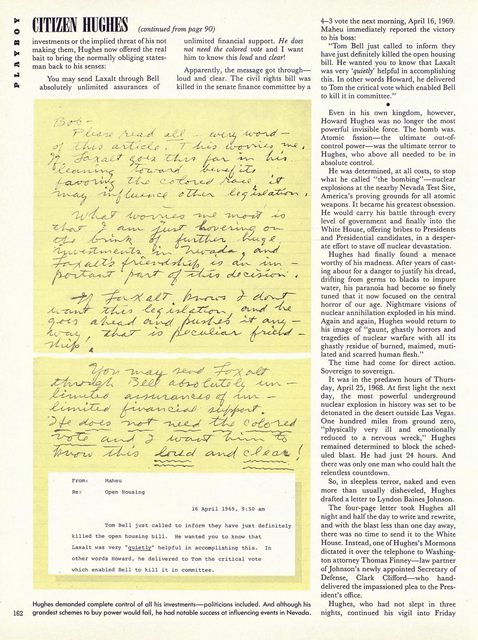 PLAYBOY
CITIZEN HUGHES (continued from page 90)
investments or the implied threat of his not
making them, Hughes now offered the real
bait to bring the normally obliging states-
man back to his senses:
You may send Laxalt through Bell
absolutely unlimited assurances of
unlimited financial support. He does
not need the colored vote and I want
him to know this loud and clear!
Apparently, the message got through—
loud and clear. The civil rights bill was
killed in the senate finance committee by a
Bob-
Please read all - every word -
of this article. This worries me.
If Laxalt goes this far in his
leaning toward benefits
favoring the colored race it
may influence other legislation.
What worries me most is
that I am just hovering on
the brink of further huge
investments in Nevada, and
Laxalt's friendship is an im-
portant part of this decision.
If Laxalt knows I dont
want this legislation and he
goes ahead and pushes it any-
way, that is peculiar friend-
ship.
You may send Laxalt
through Bell absolutely un-
limited assurances of un-
limited financial support.
He does not need the colored
vote and I want him to
know this loud and clear!
From: Maheu
Re: Open Housing
16 April 1969, 9:50 am
Tom Bell just called to inform they have just definitely
killed the open housing bill. He wanted you to know that
Laxalt was very "quietly" helpful in accomplishing this. In
other words Howard, he delivered to Tom the critical vote
which enabled Bell to kill it in committee.
162
Hughes demanded complete control of all his investments—politicians included. And although his
grandest schemes to buy power would fail, he had notable success at influencing events in Nevada.
4–3 vote the next morning, April 16, 1969.
Maheu immediately reported the victory
to his boss:
"Tom Bell just called to inform they
have just definitely killed the open housing
bill. He wanted you to know that Laxalt
was very 'quietly' helpful in accomplishing
this. In other words Howard, he delivered
to Tom the critical vote which enabled Bell
to kill it in committee."
•
Even in his own kingdom, however,
Howard Hughes was no longer the most
powerful invisible force. The bomb was.
Atomic fission—the ultimate out-of-
control power—was the ultimate terror to
Hughes, who above all needed to be in
absolute control.
He was determined, at all costs, to stop
what he called "the bombing"—nuclear
explosions at the nearby Nevada Test Site,
America's proving grounds for all atomic
weapons. It became his greatest obsession.
He would carry his battle through every
level of government and finally into the
White House, offering bribes to Presidents
and Presidential candidates, in a desper-
ate effort to stave off nuclear devastation.
Hughes had finally found a menace
worthy of his madness. After years of cast-
ing about for a danger to justify his dread,
drifting from germs to blacks to impure
water, his paranoia had become so finely
tuned that it now focused on the central
horror of our age. Nightmare visions of
nuclear annihilation exploded in his mind.
Again and again, Hughes would return to
his image of "gaunt, ghastly horrors and
tragedies of nuclear warfare with all its
ghastly residue of burned, maimed, muti-
lated and scarred human flesh."
The time had come for direct action.
Sovereign to sovereign.
It was in the predawn hours of Thurs-
day, April 25, 1968. At first light the next
day, the most powerful underground
nuclear explosion in history was set to be
detonated in the desert outside Las Vegas.
One hundred miles from ground zero,
"physically very ill and emotionally
reduced to a nervous wreck," Hughes
remained determined to block the sched-
uled blast. He had just 24 hours. And
there was only one man who could halt the
relentless countdown.
So, in sleepless terror, naked and even
more than usually disheveled, Hughes
drafted a letter to Lyndon Baines Johnson.
The four-page letter took Hughes all
night and half the day to write and rewrite,
and with the blast less than one day away,
there was no time to send it to the White
House. Instead, one of Hughes's Mormons
dictated it over the telephone to Washing-
ton attorney Thomas Finney—law partner
of Johnson's newly appointed Secretary of
Defense, Clark Clifford—who hand-
delivered the impassioned plea to the Presi-
dent's office.
Hughes, who had not slept in three
nights, continued his vigil into Friday